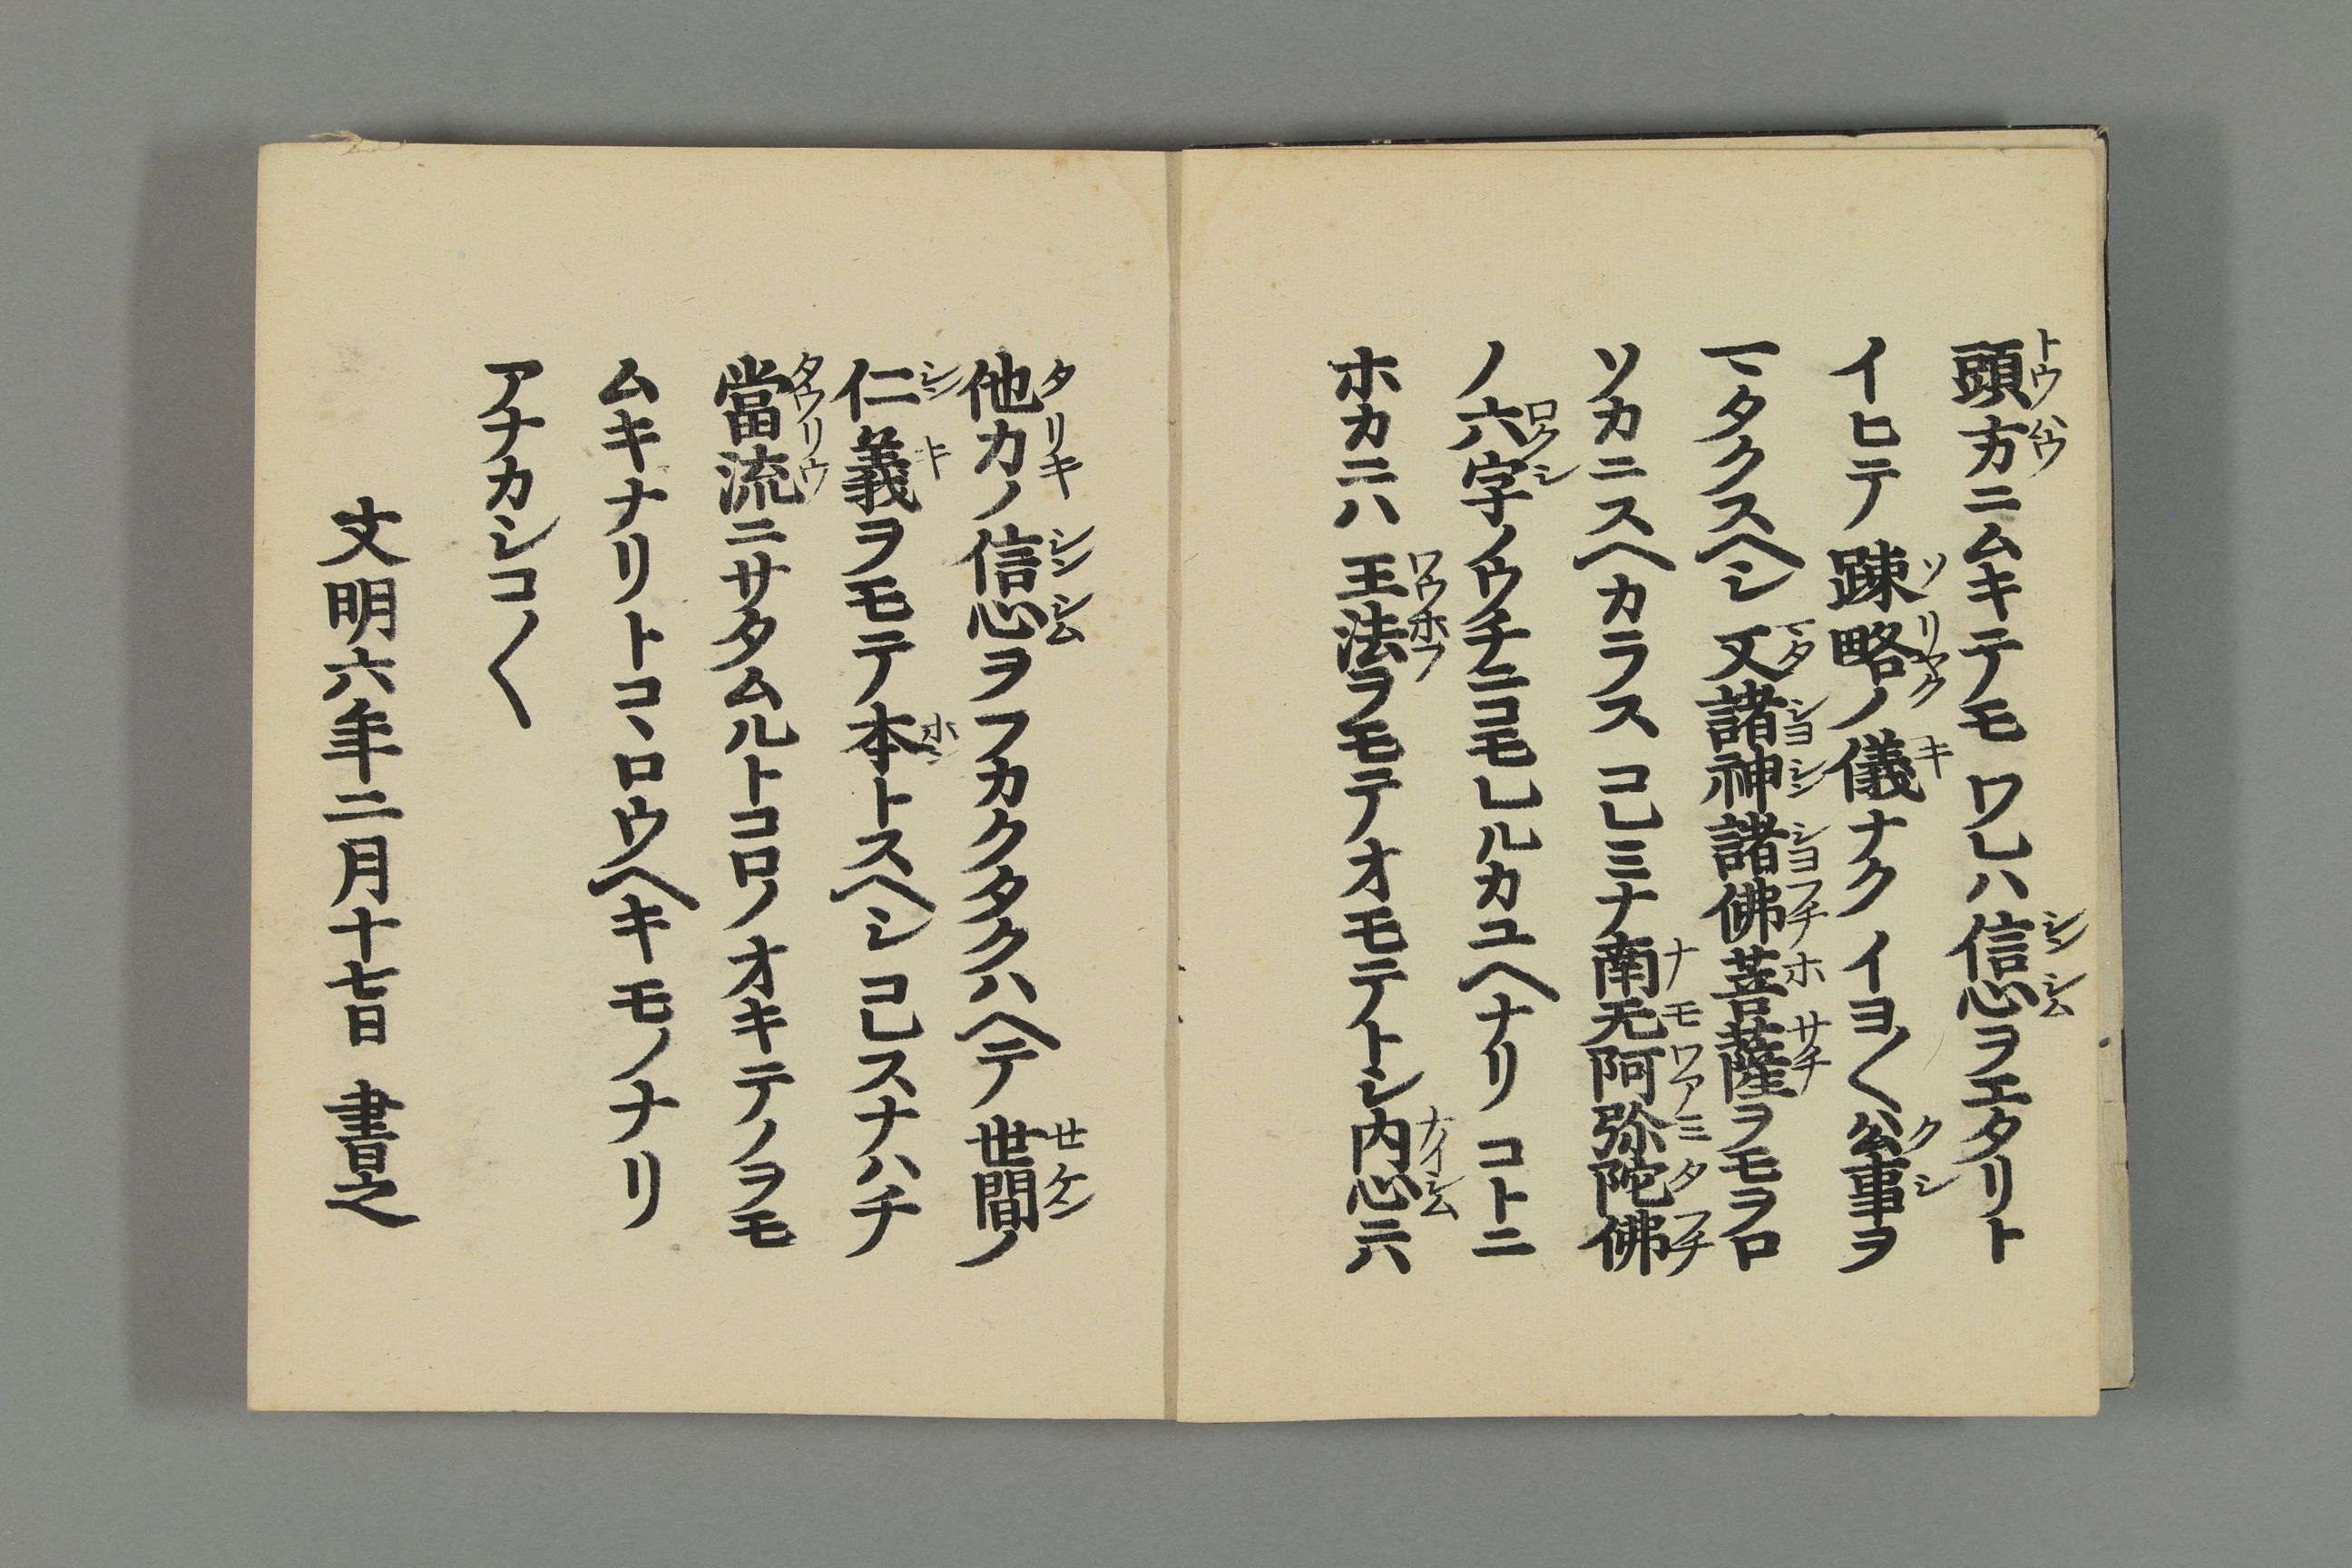 頭方ニムキテモワレハ信心ヲエタリト
イヒテ踈略ノ儀ナクイヨ〱公事ヲ
マタクスヘシ又諸神諸佛菩薩ヲモヲロ
ソカニスヘカラスコレミナ南无阿弥陀佛
ノ六字ノウチニコモレルカユヘナリコトニ
ホカニハ王法ヲモテオモテトシ内心ニハ
他力ノ信心ヲフカクタクハヘテ世間ノ
仁義ヲモテ本トスヘシコレスナハチ
當流ニサタムルトコロノオキテノヲモ
ムキナリトコヽロウヘキモノナリ
アナカシコ〱
文明六年二月十七日書之